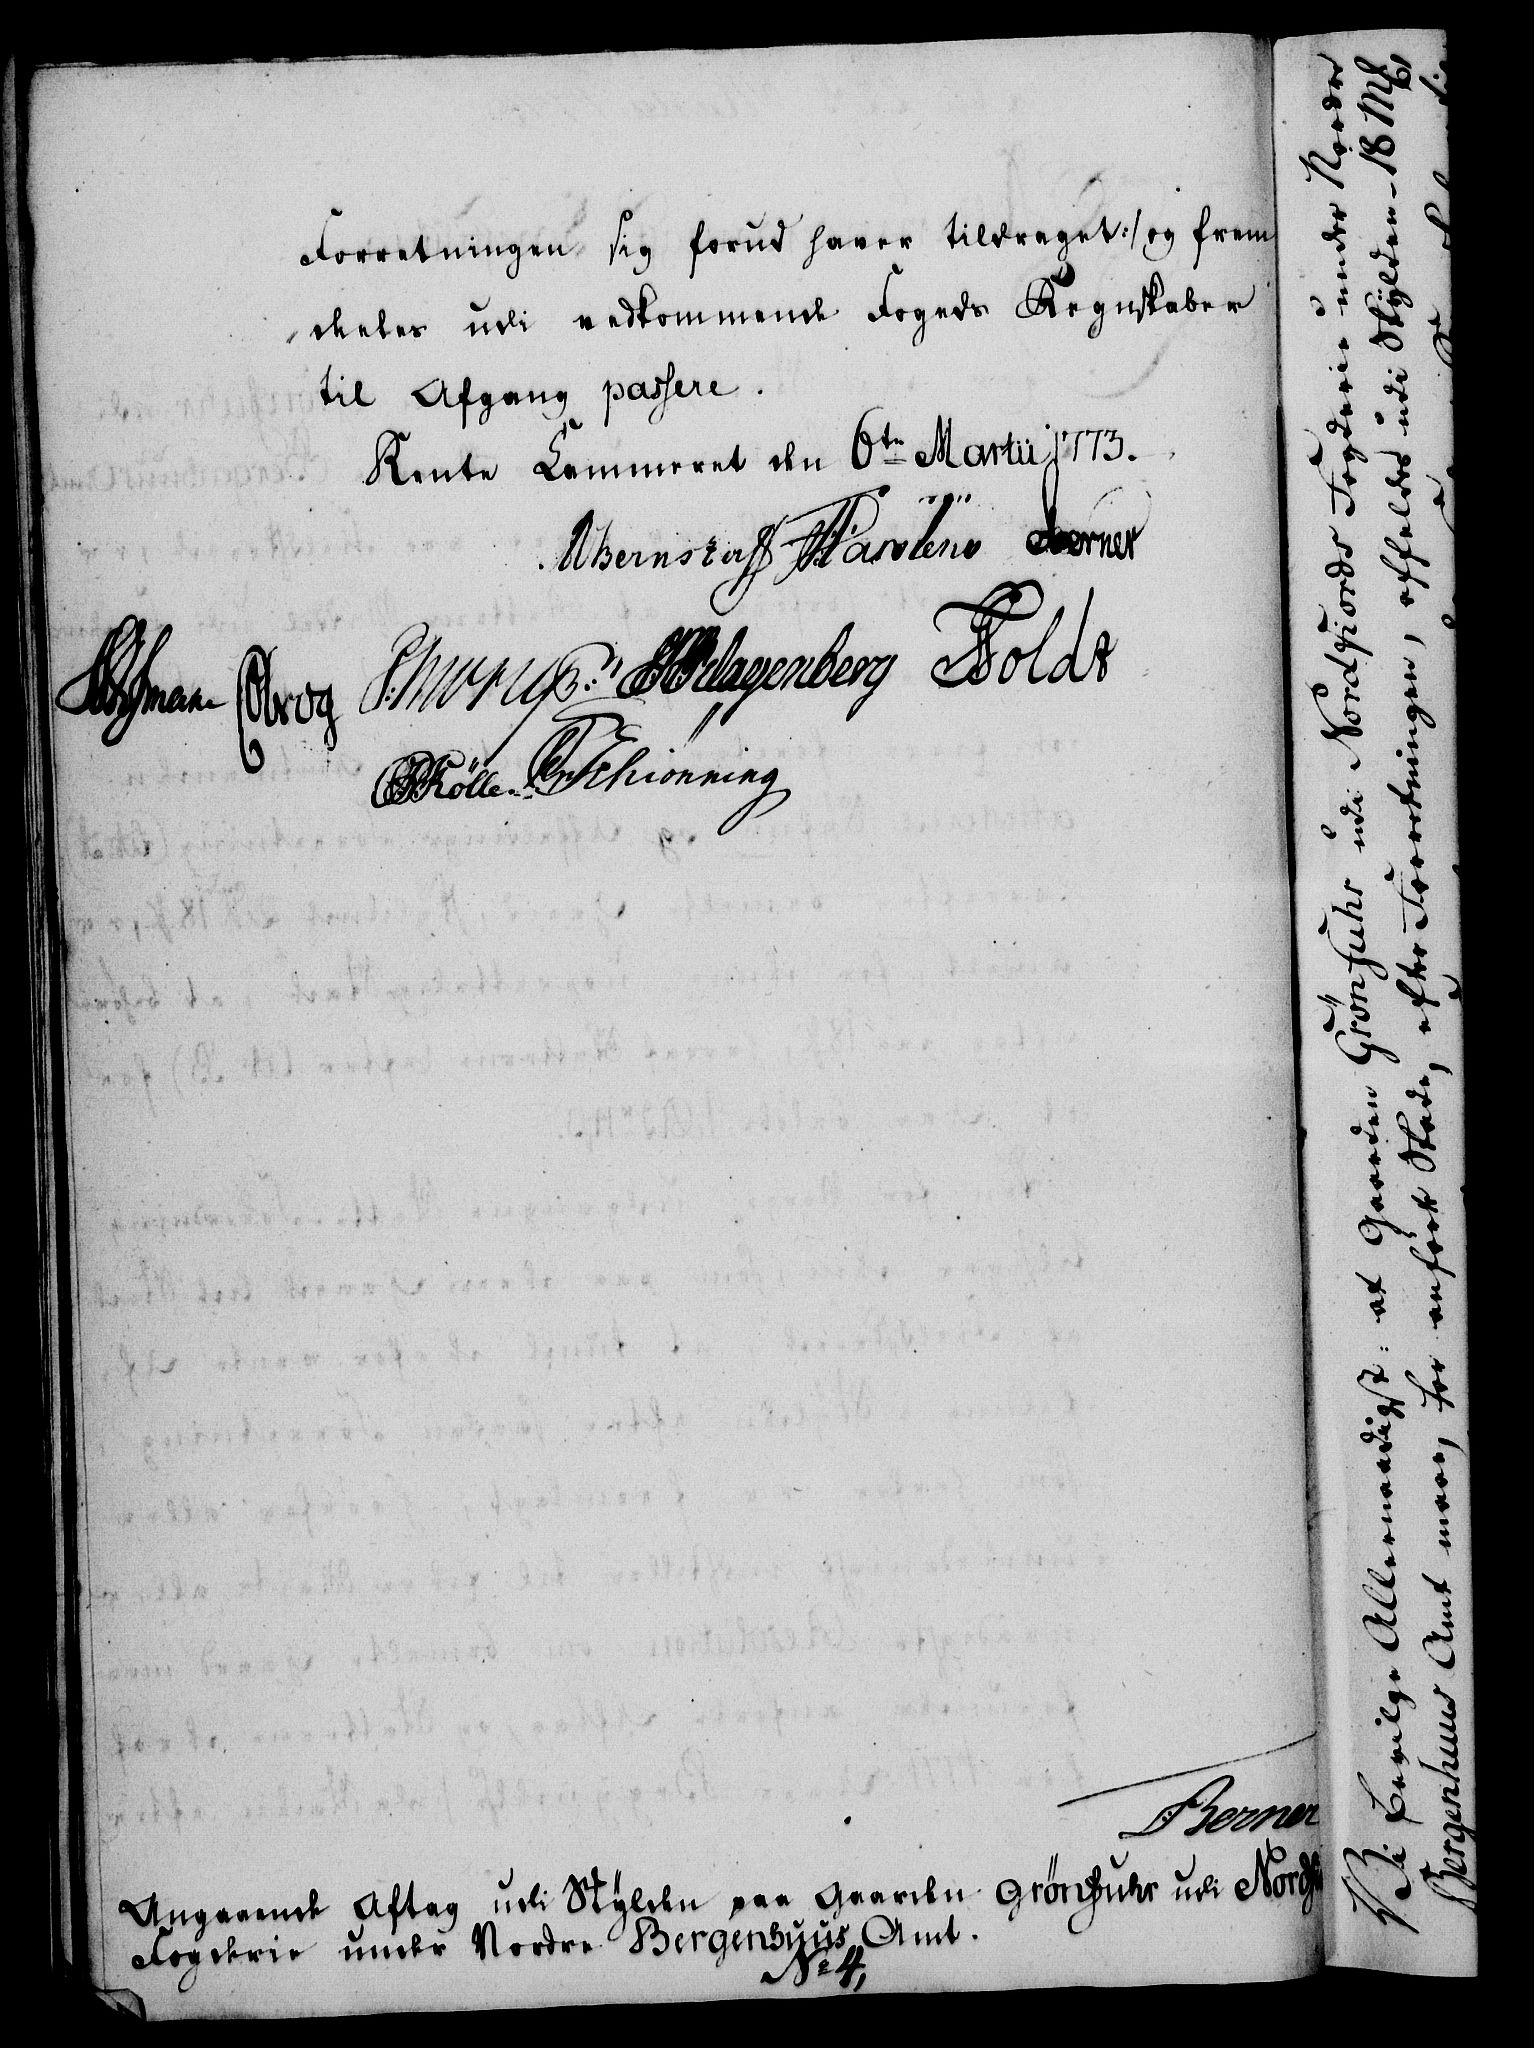 Forretningen sig forud haver tildraget:/ og frem
deeles udi vedkommende Fogeds Regnskaber
til Afgang passere.
Rente Cammeret den 6te Martii 1773.
ABernstorff Berner
Obrog HKlagenberg Holdt
Kölle. Schiönning
Berner
Angaaende Aftag udi Skylden paa Gaarden Grönfuhr udi Nordf
Fogderie under Nordre Bergenhuus Amt.
No 4,
Vi bevilge Allernaadigst: at Gaarden Grönfuhr udi Nordfiords Fogderie under Nordre
Bergenhuus Amt maae, for anförte Skade, efter Forretningen, affeldes udi Skylden - 18 Mk